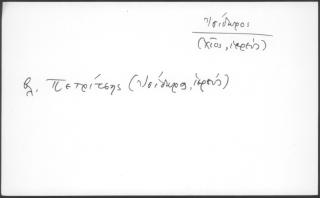 Ἰσίδωρος
(Χῖος, ἱερεύς)
βλ. Πετρίτσης (Ἰσίδωρος, ἱερεύς)